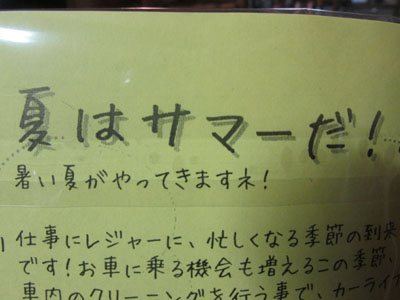 夏はサマーだ!
暑い夏がやってきますネ!
仕事にレジャーに、忙しくなる季節の到来
です!お車に乗る機会も増えるこの季節、
車内のクリーニングを行う事で、カーライフ